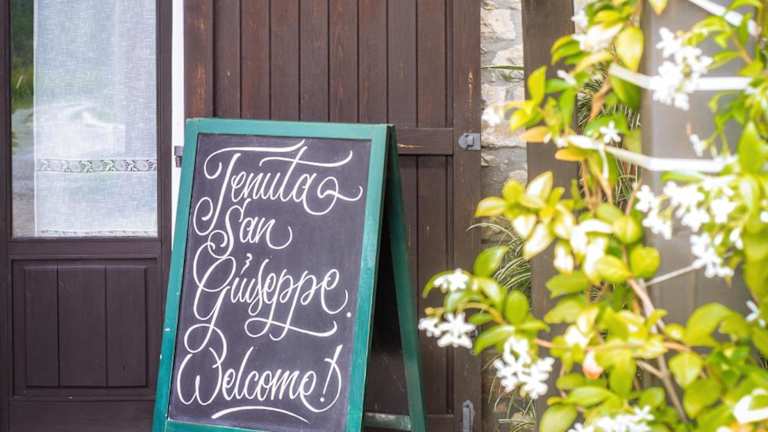 Tenuta
San
Giuseppe.
Welcome!